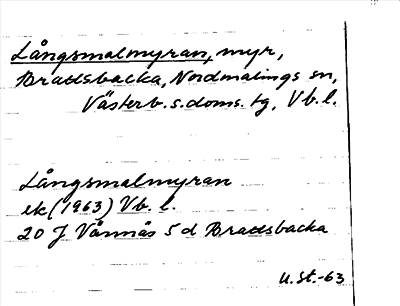 Långsmalmyran, myr,
Bradsbacka, Nordmalings sn,
Västerb. s. doms. tg, Vb. l.
Långsmalmyran
ek (1963) Vb. l.
20 J Vännäs 5 d Bradsbacka
U. St.-63